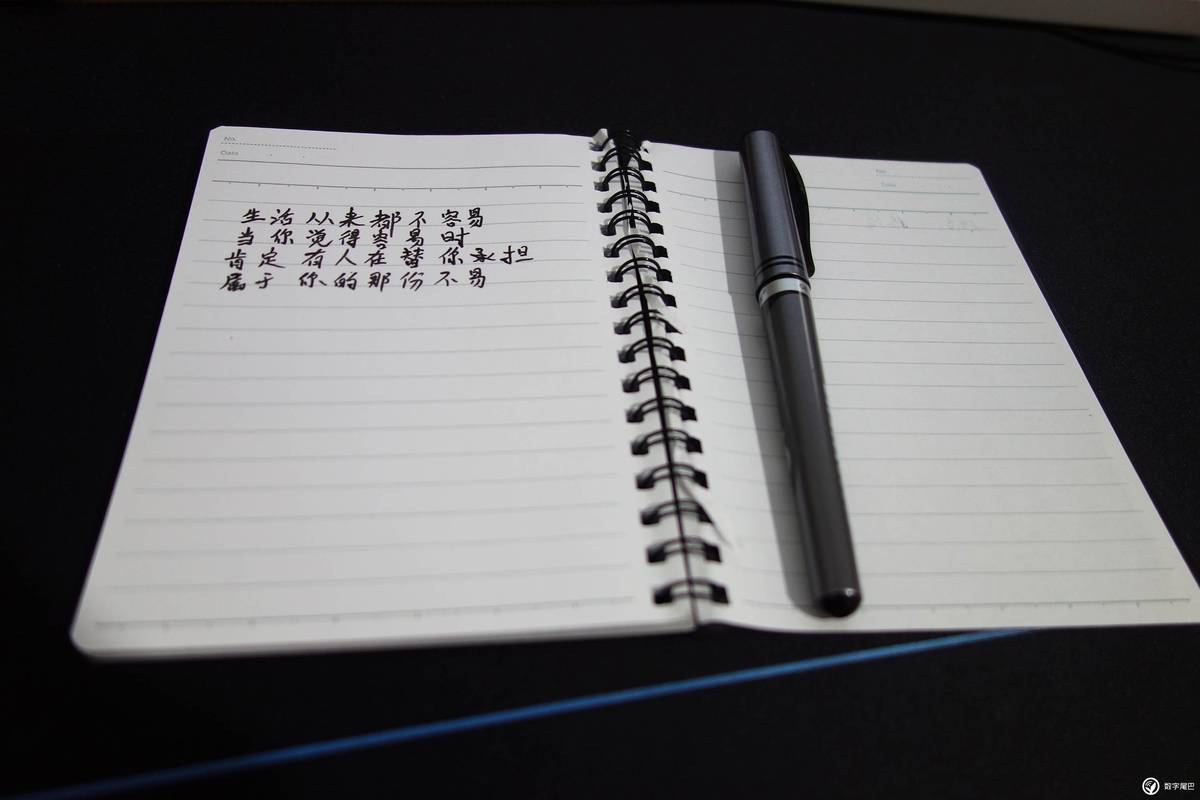 No.
Date
生活从来都不容易
当你觉得容易时
肯定有人在替你承担
属于你的那份不易
No.
Date
数字尾巴